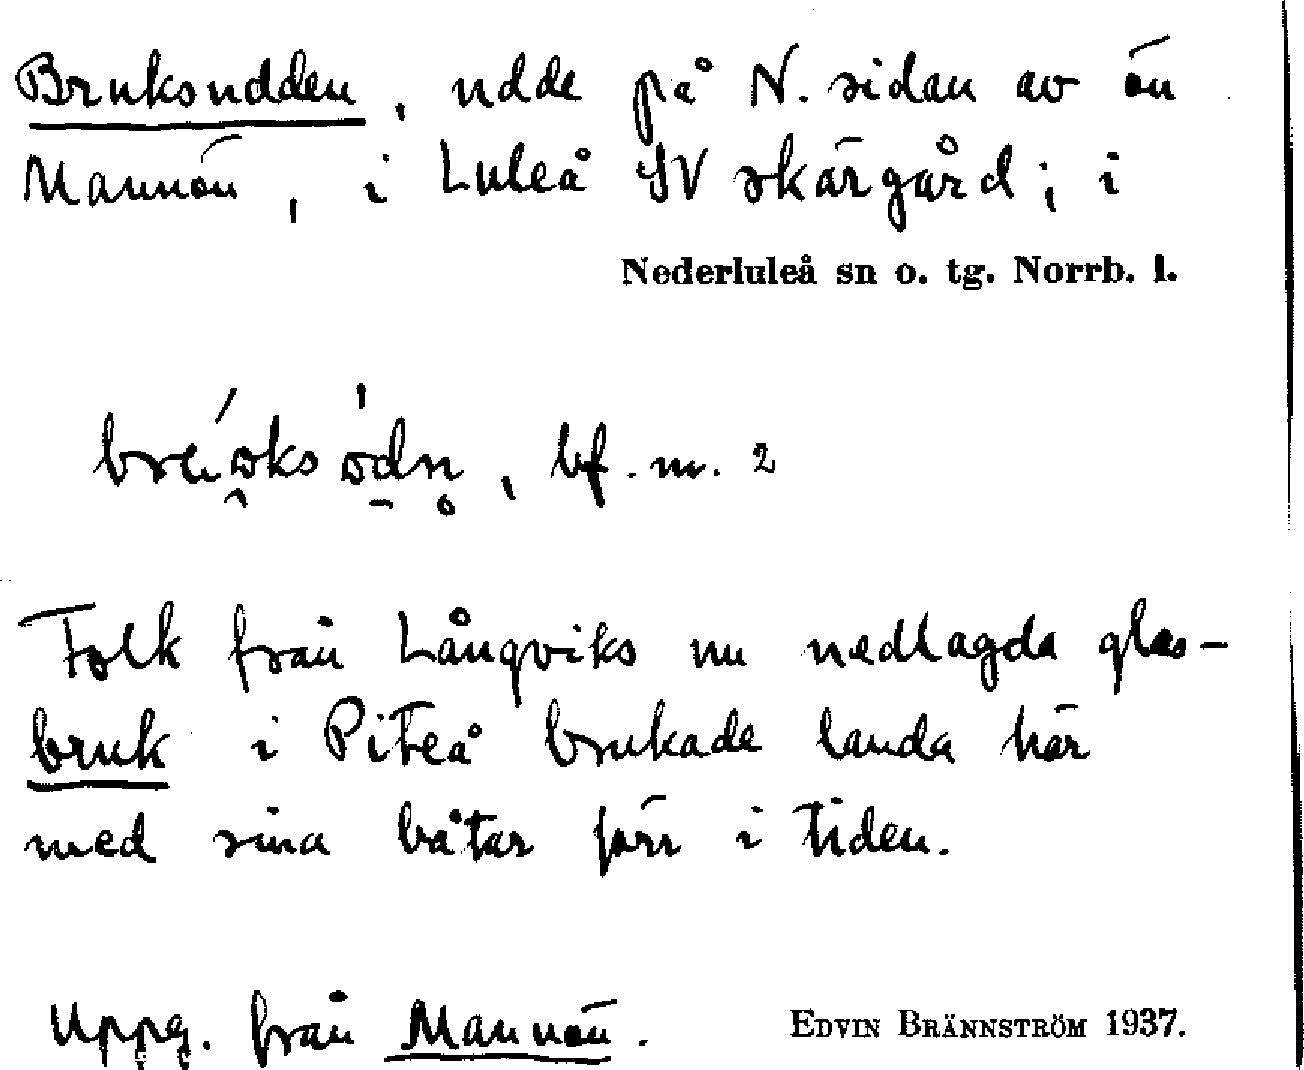 Bruksudden, udde på N. sidan av ön
Mannön, i Luleå SV skärgård; i
Nederluleå sn o. tg. Norrb. l.
bf. m. 2
Folk från Långviks nu nedlagda glas-
bruk i Piteå brukade landa här
med sina båtar förr i tiden.
Uppg. från Mannön.
EDVIN BRÄNNSTRÖM 1937.